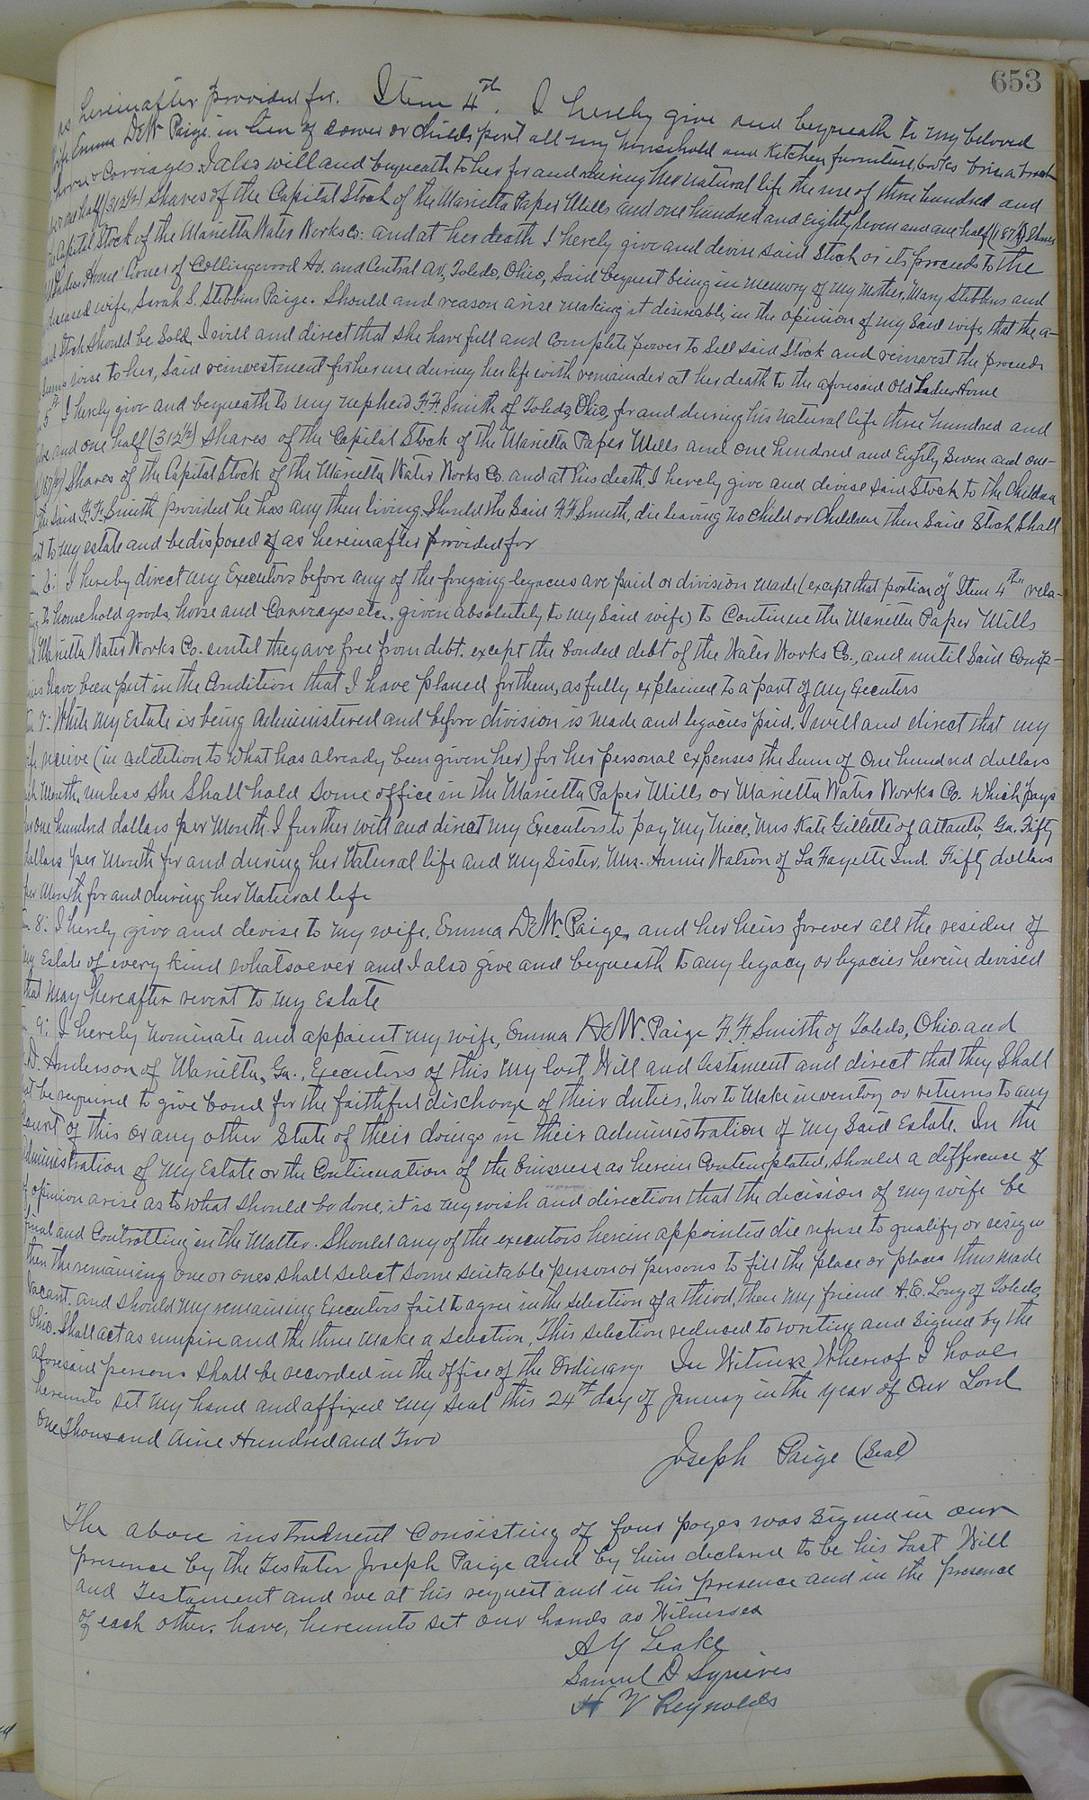 653
as hereinafter provided for. Item 4th. I hereby give and bequeath to my beloved
wife Emma DeW. Paige in lieu of dower or childs part all my household and Kitchen furniture, books bric a brac
horse & Carriages I also will and bequeath to her for and during her natural life the use of three hundred and
one half (312½) shares of the Capital Stock of the Marietta Paper Mills and one hundred and Eighty Seven and one half (187½) Shares
Capital Stock of the Marietta Water Works Co: and at her death I hereby give and devise said Stock or its proceeds to the
Old Ladies Home Corner of Collingwood Av. and Central Av, Toledo, Ohio, Said bequest being in memory of my Mother, Mary Stebbins and
deceased wife, Sarah S. Stebbins Paige. Should and reason arise making it desirable, in the opinion of my Said wife, that the a-
said Stock should be Sold, I will and direct that she have full and complete power to Sell said Stock and reinvest the proceeds
seems wise to her, Said reinvestment for her use during her life with remainder at her death to the aforesaid Old Ladies Home
5th I hereby give and bequeath to my nephew F. F. Smith of Toledo, Ohio, for and during his natural life three hundred and
and one half (312½) Shares of the Capital Stock of the Marietta Paper Mills and one hundred and Eighty Seven and one-
(187½) Shares of the Capital Stock of the Marietta Water Works Co and at his death I hereby give and devise said Stock to the Children
the said F. F. Smith provided he has any then living. Should the Said F. F. Smith, die leaving no child or Children then Said Stock Shall
to my estate and be disposed of as hereinafter provided for
6: I hereby direct my Executors before any of the foregoing legacies are paid or division made (except that portion of "Item 4th" rela-
to household goods, horse and Carriages etc., given absolutely to my Said wife) to Continue the Marietta Paper Mills
Marietta Water Works Co. until they are free from debt. except the bonded debt of the Water Works Co., and until Said Comp-
have been put in the Condition that I have planed for them, as fully explained to a part of my Executors
7: While my Estate is being administered and before division is made and legacies paid. I will and direct that my
wife receive (in addition to what has already been given her) for her personal expenses the Sum of One hundred dollars
Month, unless She Shall hold some office in the Marietta Paper Mills or Marietta Water Works Co. which pays
her one hundred dollars per Month. I further will and direct my Executors to pay my Niece, Mrs Kate Gillette of Atlanta, Ga. Fifty
dollars per Month for and during her Natural life and my Sister, Mrs. Annie Watson of La Fayette Ind Fifty dollars
per Month for and during her Natural life
8: I hereby give and devise to my wife, Emma DeW. Paige, and her heirs forever all the residue of
my Estate of every kind whatsoever and I also give and bequeath to any legacy or legacies herein devised
that may hereafter revert to my Estate
9: I hereby nominate and appoint my wife, Emma DeW. Paige F. F. Smith of Toledo, Ohio. and
D. Anderson of Marietta, Ga., Executors of this my last, Will and Testament and direct that they Shall
be required to give bond for the faithful discharge of their duties, Nor to Make inventory or returns to any
Court of this or any other State of their doings in their administration of my Said Estate. In the
administration of my Estate or the Continuation of the business as herein Contemplated, should a difference of
opinion arise as to what should be done, it is my wish and direction that the decision of my wife be
final and Controlling in the Matter. Should any of the executors herein appointed die refuse to qualify or resign
then the remaining one or ones shall select some suitable person or persons to fill the place or places thus made
vacant. and should my remaining Executors fail to agree in the selection of a third, then my friend A. E. Long of Toledo,
Ohio. Shall act as umpire and the three Make a selection, This selection reduced to writing and signed by the
aforesaid persons shall be recorded in the office of the Ordinary. In Witness Whereof I have
hereunto set my hand and affixed my seal this 24th day of January in the year of Our Lord
One Thousand Nine Hundred and Two
Joseph Paige (Seal)
The above instrument Consisting of four pages was signed in our
presence by the Testator Joseph Paige and by him declared to be his Last Will
and Testament and we at his request and in his presence and in the presence
of each other, have, hereunto set our hands as Witnesses
A Y Leake
Samuel D
H V Reynolds